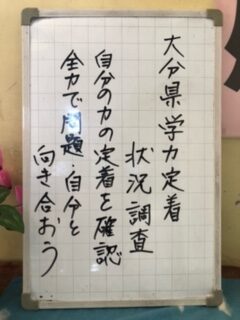 大分県学力定着
状況調査
自分の力の定着を確認
全力で問題・自分と
向き合おう